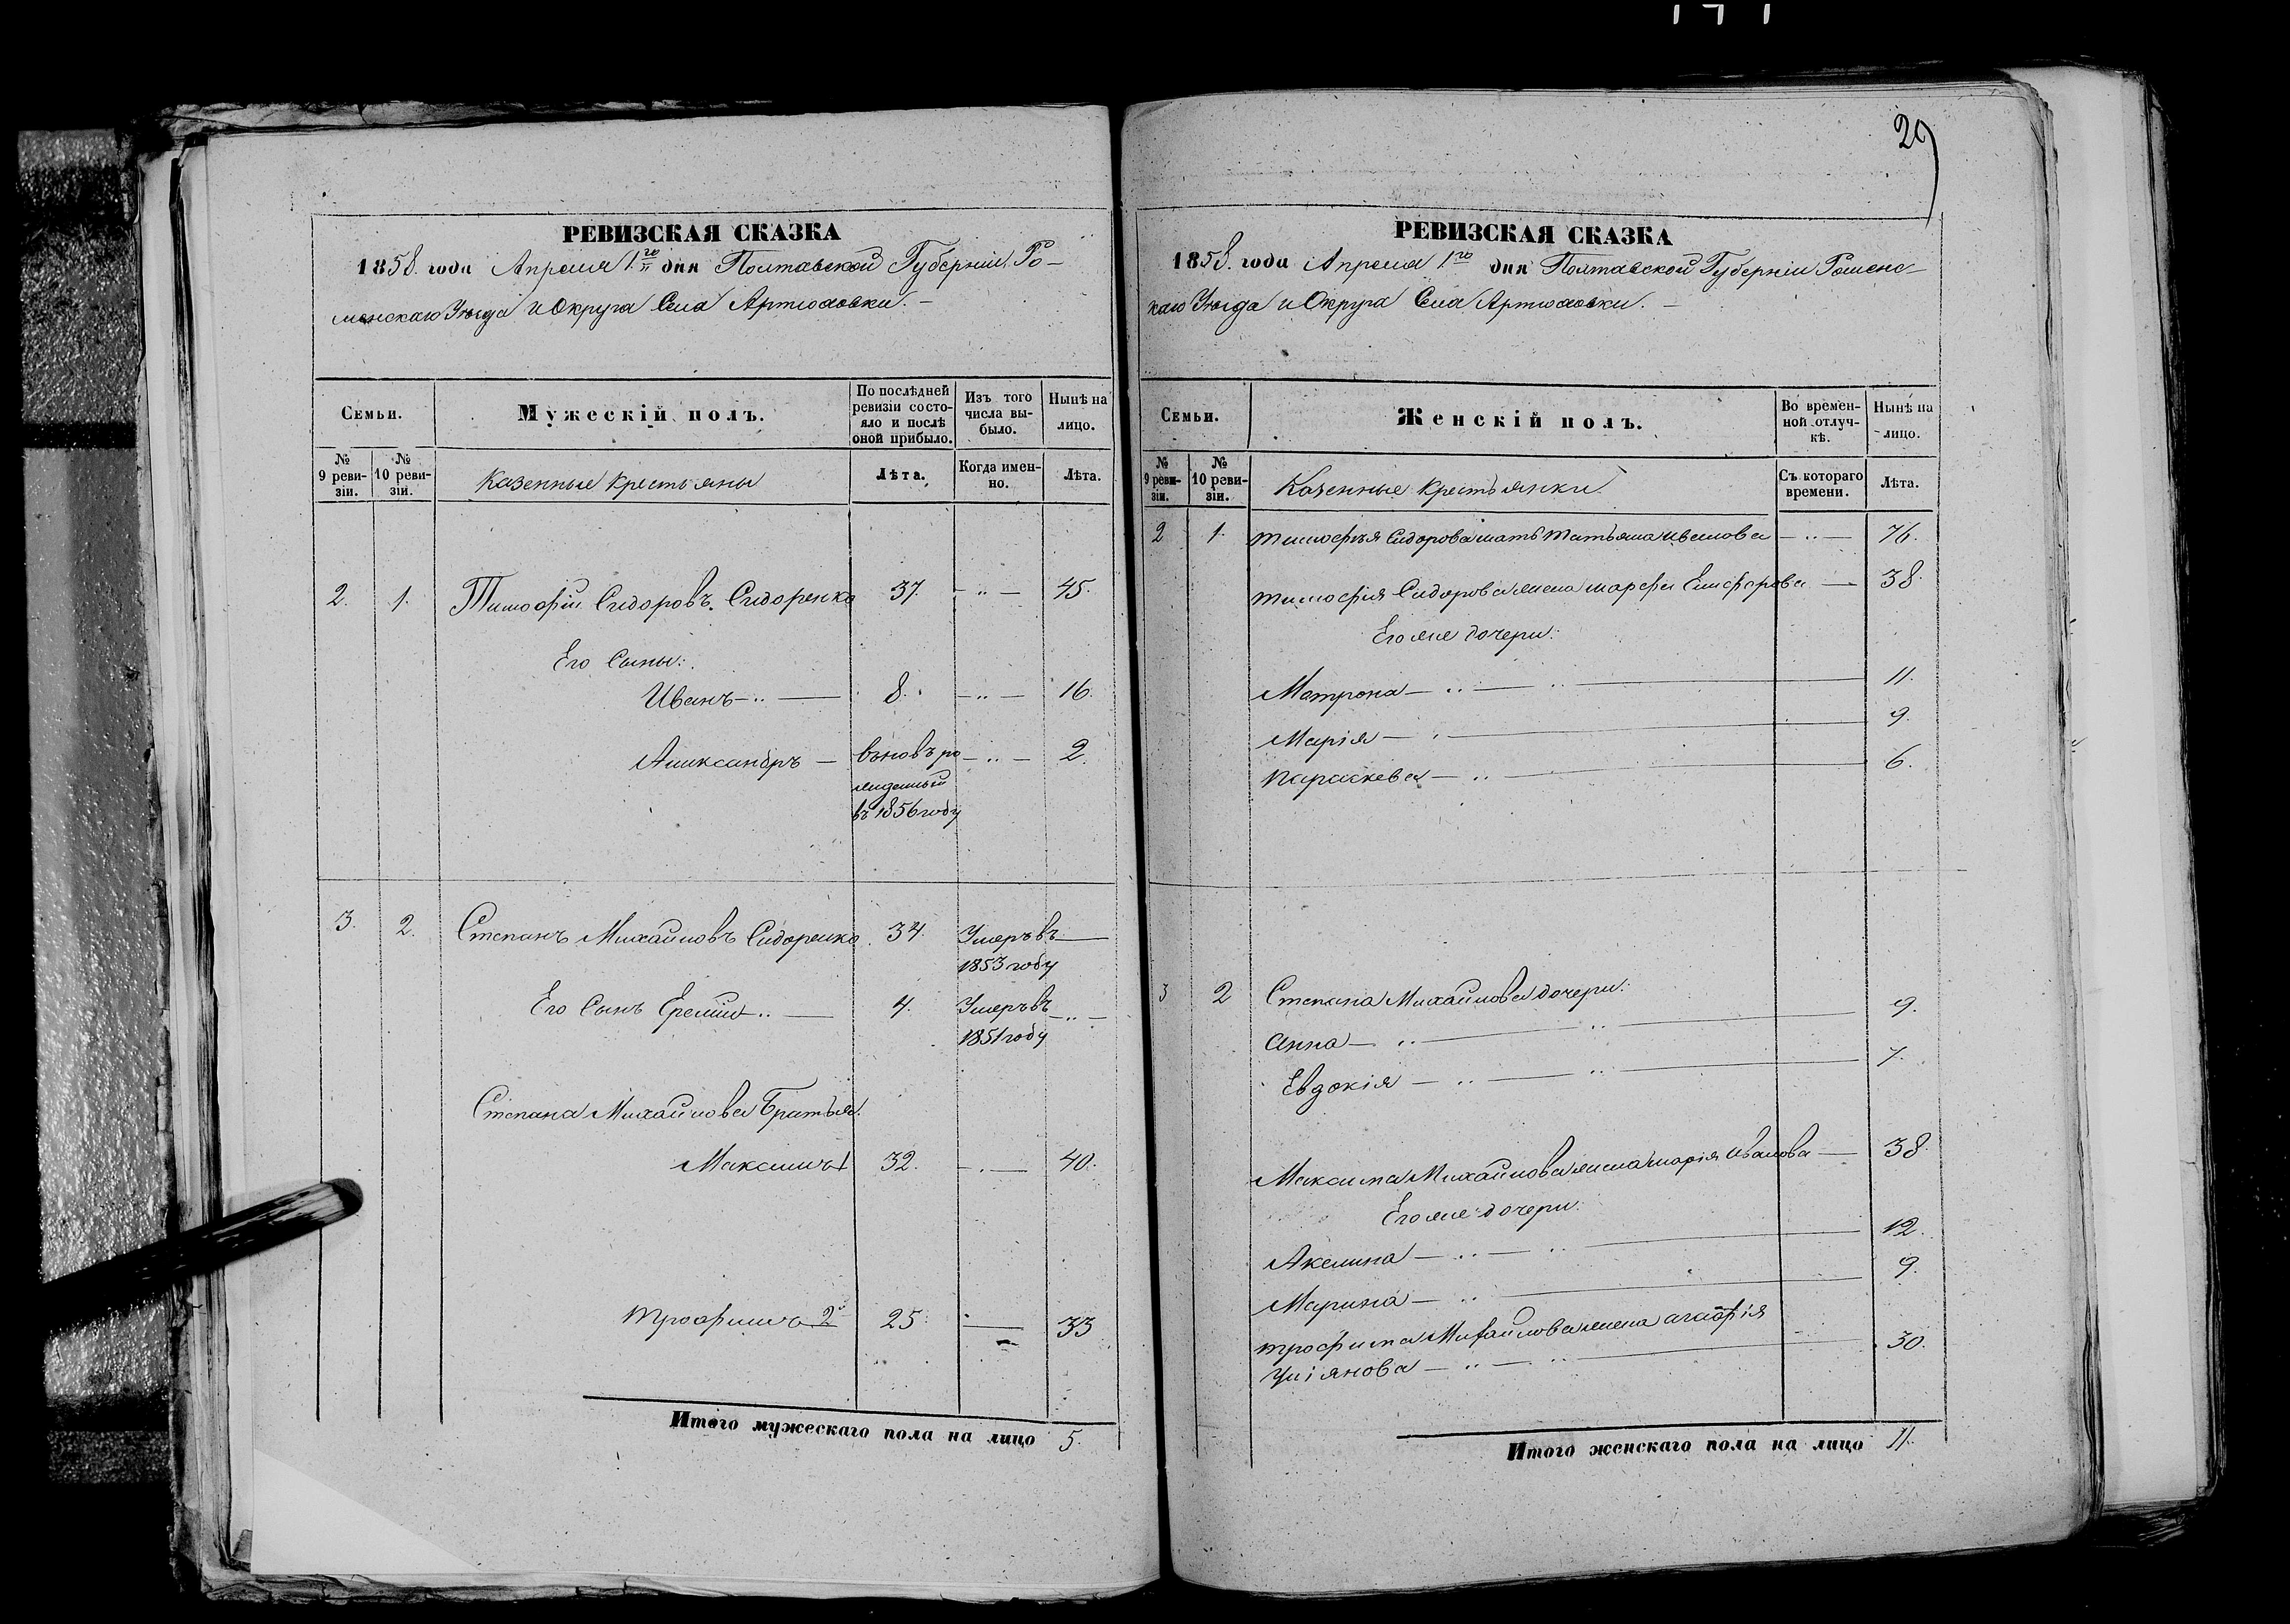 29
РЕВИЗСКАЯ СКАЗКА
1858. года Апреля 1.го дня Полтавской Губерніи, Ро-
менскаго Уѣзда и Округа Села Артюховки. -
Семьи.
Мужескій полъ.
По послѣдней ревизіи состояло и послѣ оной прибыло.
Изъ того числа выбыло.
Нынѣ на лицо.
№ 9 ревизіи.
№ 10 ревизіи.
Казенные крестьяны
Лѣта.
Когда именно.
Лѣта.
2. 1. Тимофѣй Сидоровъ Сидоренко 37. - " - 45.
Его Сыны:
Иванъ - " - 8. - " - 16.
Аликсандръ - вьновъ ро - " - 2.
жденный
въ 1856 году
3. 2. Степанъ Михайловъ Сидоренко 34. Умеръ въ -
1853 году
Его Сынъ Еремій " - 4. Умеръ въ - " -
1851 году
Степана Михайлова Братья:
Максимъ 1 32. - " - 40.
Трофимъ 2й 25. - " - 33
Итого мужескаго пола на лицо 5.
РЕВИЗСКАЯ СКАЗКА
1858. года Апреля 1го дня Полтавской Губерніи Роменс-
каго Уѣзда и Округа Села Артюховки. -
Семьи.
Женскій полъ.
Во временной отлучкѣ.
Нынѣ на лицо.
№ 9 ревизіи.
№ 10 ревизіи.
Казенные крестьянки
Съ котораго времени.
Лѣта.
2 1. Тимофѣя Сидорова мать Татьяна Иванова - " - 76.
Тимофѣя Сидорова жена Марфа Елисѣева - 38.
Его же дочери:
Матрона - " - " - 11.
Марія - " - 9.
Параскева - " - 6.
3 2 Степана Михайлова дочери:
Анна - " - " - 9.
Евдокія - " - " - 7.
Максима Михайлова жена Марія Иванова - 38.
Его же дочери:
Акелина - " - " - 12.
Марина - " - 9.
Трофима Михайлова жена Агафія
Уліянова - " - " - 30.
Итого женскаго пола на лицо 11.